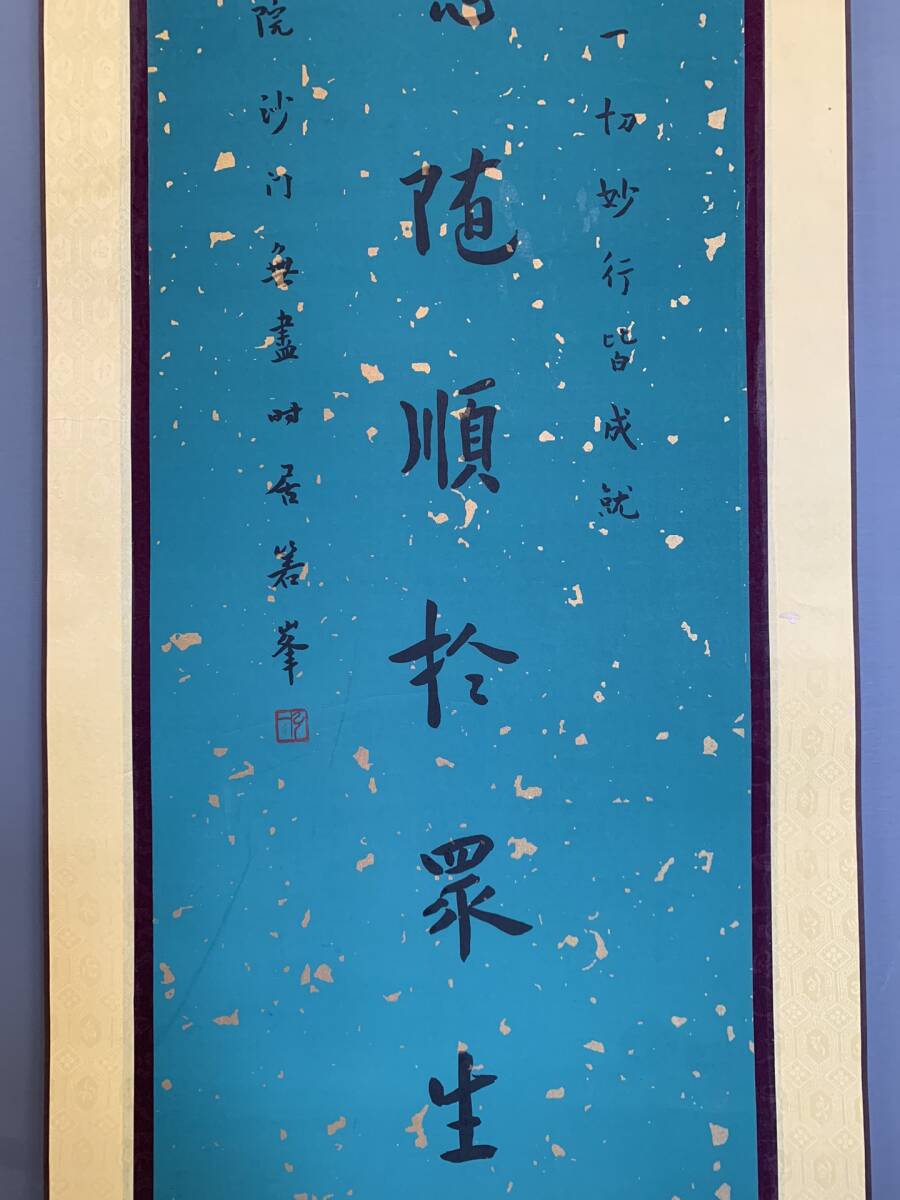 一切妙行皆成就
随順於眾生
院沙门無盡时居箬峯